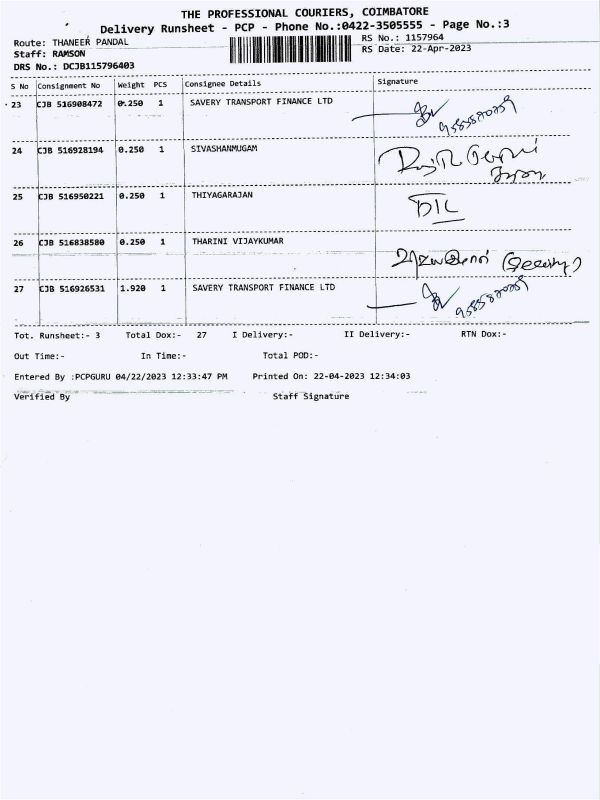 THE PROFESSIONAL COURIERS, COIMBATORE
Delivery Runsheet - PCP - Phone No.:0422-3505555 - Page No.:3
Route: THANEER PANDAL
RS No.: 1157964
Staff: RAMSON
RS Date: 22-Apr-2023
DRS No.: DCJB115796403
S No Consignment No Weight PCS Consignee Details Signature
23 CJB 516908472 0.250 1 SAVERY TRANSPORT FINANCE LTD
24 CJB 516928194 0.250 1 SIVASHANMUGAM
25 CJB 516950221 0.250 1 THIYAGARAJAN
26 CJB 516838580 0.250 1 THARINI VIJAYKUMAR
27 CJB 516926531 1.920 1 SAVERY TRANSPORT FINANCE LTD
Tot. Runsheet:- 3 Total Dox:- 27 I Delivery:- II Delivery:- RTN Dox:-
Out Time:- In Time:- Total POD:-
Entered By :PCPGURU 04/22/2023 12:33:47 PM Printed On: 22-04-2023 12:34:03
Verified By Staff Signature